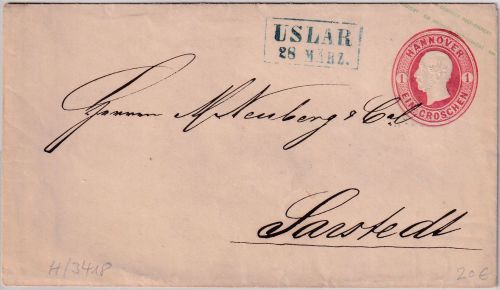 USLAR
28 MÄRZ.
HANNOVER
1 1
EIN GROSCHEN
Herren M Neuberg & Co
Sarstedt
H/3418
20€